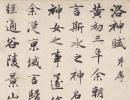 洛神賦 并序
黄初三年余朝
言斯水之神名
神女之事遂作
余從京域言
經通谷陵景山